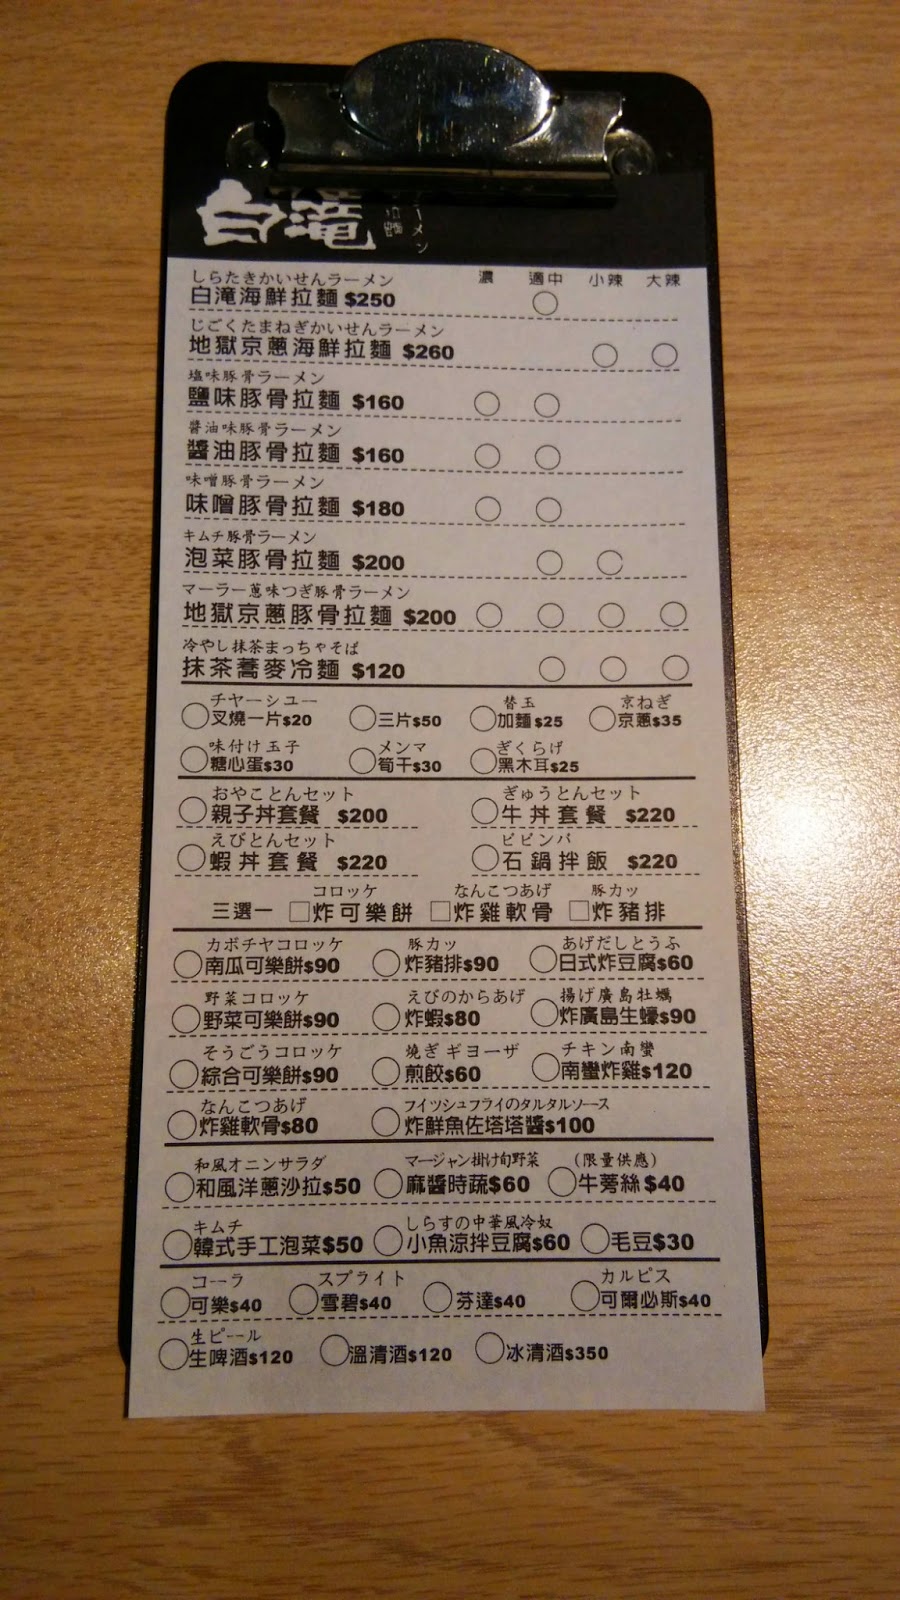 白滝
ーメン
しらたきかいせんラーメン 濃 適中 小辣 大辣
白滝海鮮拉麵 $250
じごくたまねぎかいせんラーメン
地獄京蔥海鮮拉麵 $260
塩味豚骨ラーメン
鹽味豚骨拉麵 $160
醬油味豚骨ラーメン
醬油豚骨拉麵 $160
味噌豚骨ラーメン
味噌豚骨拉麵 $180
キムチ豚骨ラーメン
泡菜豚骨拉麵 $200
マーラー蔥味つぎ豚骨ラーメン
地獄京蔥豚骨拉麵 $200
冷やし抹茶まっちゃそば
抹茶蕎麥冷麵 $120
チヤーシユー 替玉 京ねぎ
叉燒一片$20 三片$50 加麵$25 京蔥$35
味付け玉子 メンマ ぎくらげ
糖心蛋$30 筍干$30 黑木耳$25
おやことんセット ぎゅうとんセット
親子丼套餐 $200 牛丼套餐 $220
えびとんセット ビビンバ
蝦丼套餐 $220 石鍋拌飯 $220
コロッケ なんこつあげ 豚カッ
三選一 炸可樂餅 炸雞軟骨 炸豬排
カボチヤコロッケ 豚カッ あげだしとうふ
南瓜可樂餅$90 炸豬排$90 日式炸豆腐$60
野菜コロッケ えびのからあげ 揚げ廣島牡蠣
野菜可樂餅$90 炸蝦$80 炸廣島生蠔$90
そうごうコロッケ 燒ぎギヨーザ チキン南蠻
綜合可樂餅$90 煎餃$60 南蠻炸雞$120
なんこつあげ フイツシュフライのタルタルソース
炸雞軟骨$80 炸鮮魚佐塔塔醬$100
和風オニンサラダ マージャン掛け旬野菜 (限量供應)
和風洋蔥沙拉$50 麻醬時蔬$60 牛蒡絲$40
キムチ しらすの中華風冷奴
韓式手工泡菜$50 小魚涼拌豆腐$60 毛豆$30
コーラ スプライト カルピス
可樂$40 雪碧$40 芬達$40 可爾必斯$40
生ビール
生啤酒$120 溫清酒$120 冰清酒$350